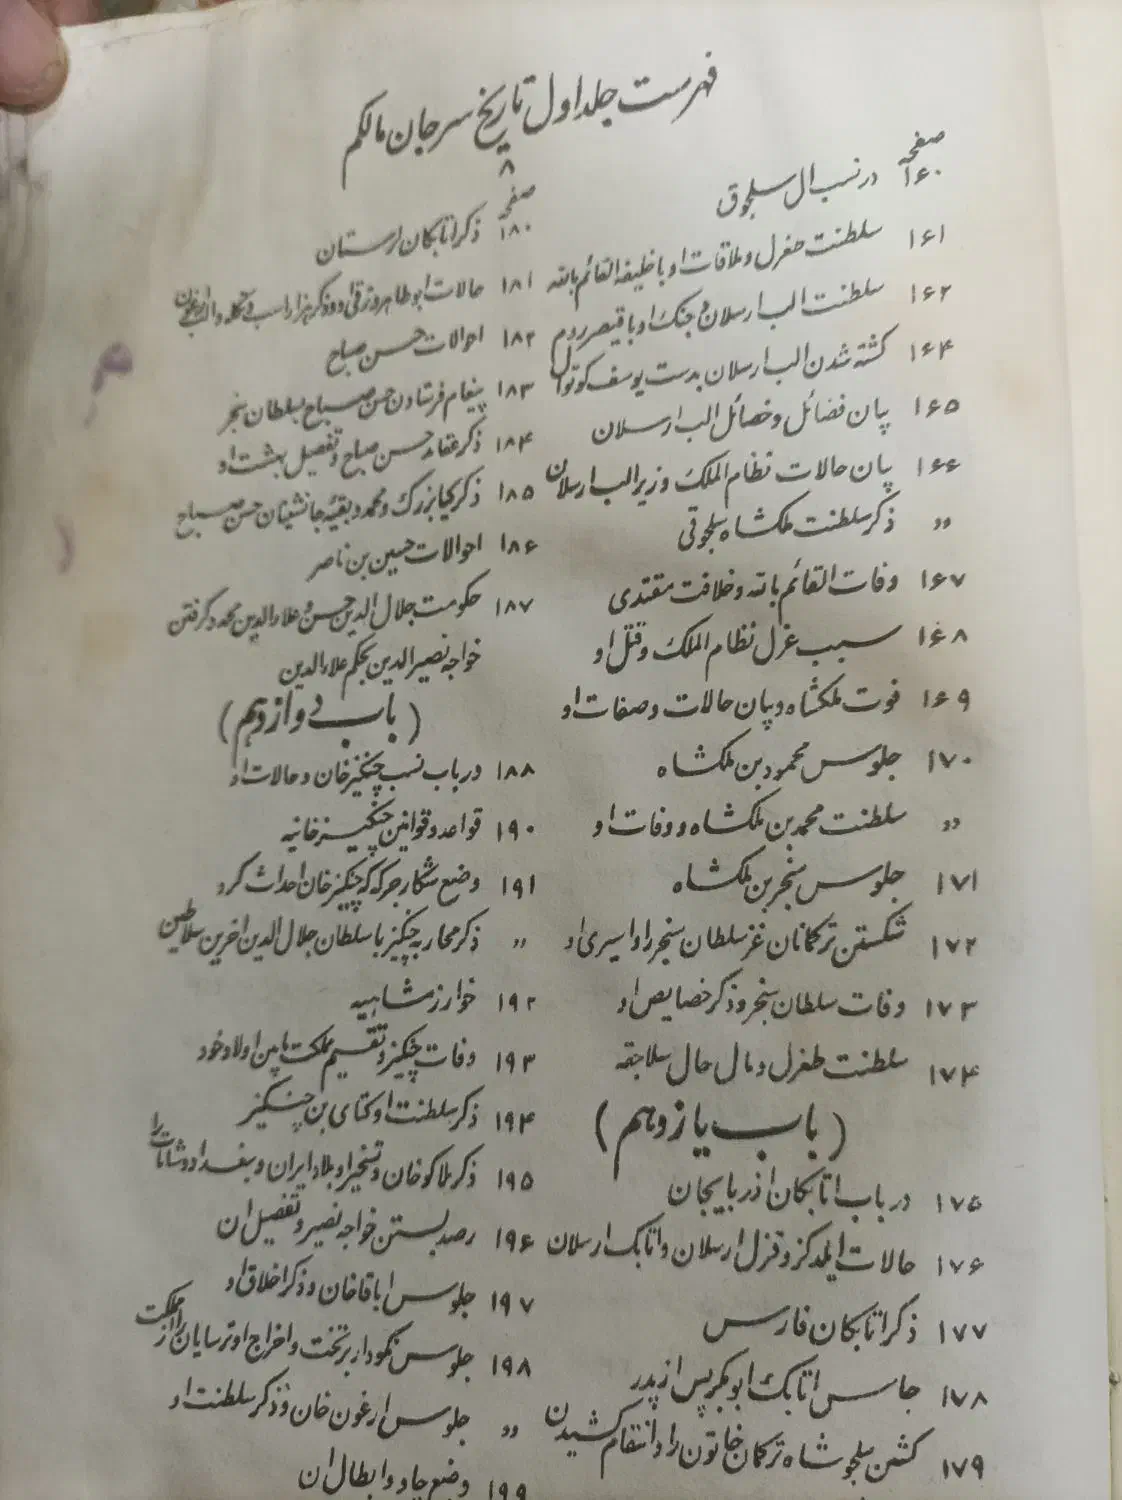 فهرست جلد اول تاریخ سرجان مالکم
۸
صفحه
۱۶۰ در نسب ال سلجوق
۱۶۱ سلطنت طغرل و ملاقات او با خلیفه القائم بالله
۱۶۲ سلطنت الب ارسلان و جنک او با قیصر روم
۱۶۴ کشته شدن الب ارسلان بدست یوسف کوتوال
۱۶۵ بیان فضائل و خصائل الب ارسلان
۱۶۶ بیان حالات نظام الملک وزیر الب ارسلان
〃 ذکر سلطنت ملکشاه سلجوقی
۱۶۷ وفات القائم بالله و خلافت مقتدی
۱۶۸ سبب عزل نظام الملک و قتل او
۱۶۹ فوت ملکشاه و بیان حالات و صفات او
۱۷۰ جلوس محمود بن ملکشاه
〃 سلطنت محمد بن ملکشاه و وفات او
۱۷۱ جلوس سنجر بن ملکشاه
۱۷۲ شکستن ترکمانان غز سلطان سنجر را و اسیری او
۱۷۳ وفات سلطان سنجر و ذکر خصایص او
۱۷۴ سلطنت طغرل و مال حال سلاجقه
(باب یازدهم)
۱۷۵ در باب اتابکان اذربایجان
۱۷۶ حالات ایلدکز و قزل ارسلان و اتابک ارسلان
۱۷۷ ذکر اتابکان فارس
۱۷۸ اتابک ابوبکر پس از پدر
۱۷۹ کشتن سلجوشاه ترکان خاتون را و انتقام کشیدن
صفحه
۱۸۰ ذکر اتابکان لرستان
۱۸۱ حالات ابوطاهر و ترقی او و ذکر هزاراسب و
۱۸۲ احوالات حسن صباح
۱۸۳ پیغام فرستادن حسن صباح بسلطان سنجر
۱۸۴ ذکر عقاید حسن صباح و تفصیل بهشت او
۱۸۵ ذکر کیا بزرک و محمد و بقیهٔ جانشینان حسن صباح
۱۸۶ احوالات حسین بن ناصر
۱۸۷ حکومت جلال الدین حسن و علاء الدین محمد و گرفتن
خواجه نصیر الدین بحکم علاء الدین
(باب دوازدهم)
۱۸۸ در باب نسب چنکیز خان و حالات او
۱۹۰ قواعد و قوانین چنکیز خانیه
۱۹۱ وضع شکار جرکه که چنکیز خان احداث کرد
〃 ذکر محاربه چنکیز با سلطان جلال الدین اخرین سلاطین
۱۹۲ خوارزمشاهیه
۱۹۳ وفات چنکیز و تقسیم مملکت مابین اولاد خود
۱۹۴ ذکر سلطنت اوکتای بن چنکیز
۱۹۵ ذکر هلاکو خان و تسخیر او بلاد ایران و بغداد و شامات را
۱۹۶ رصد بستن خواجه نصیر و تفصیل ان
۱۹۷ جلوس اباقاخان و ذکر اخلاق او
۱۹۸ جلوس نکودار بر تخت و اخراج او ترسایان را از مملکت
〃 جلوس ارغون خان و ذکر سلطنت او
۱۹۹ وضع چاو و ابطال ان